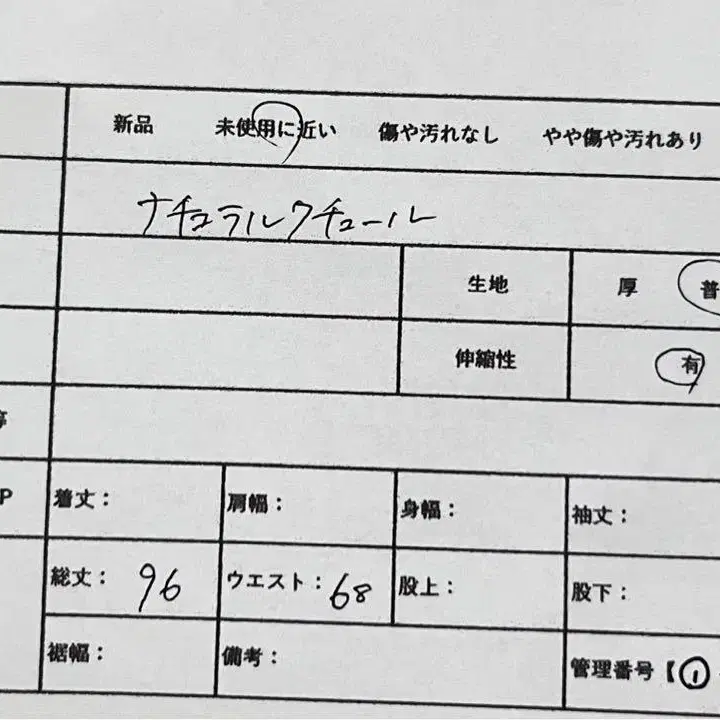 新品 未使用に近い 傷や汚れなし やや傷や汚れあり
ナチュラルクチュール
生地 厚 普
伸縮性 有
P 着丈： 肩幅： 身幅： 袖丈：
総丈： 96 ウエスト： 68 股上： 股下：
裾幅： 備考： 管理番号【①